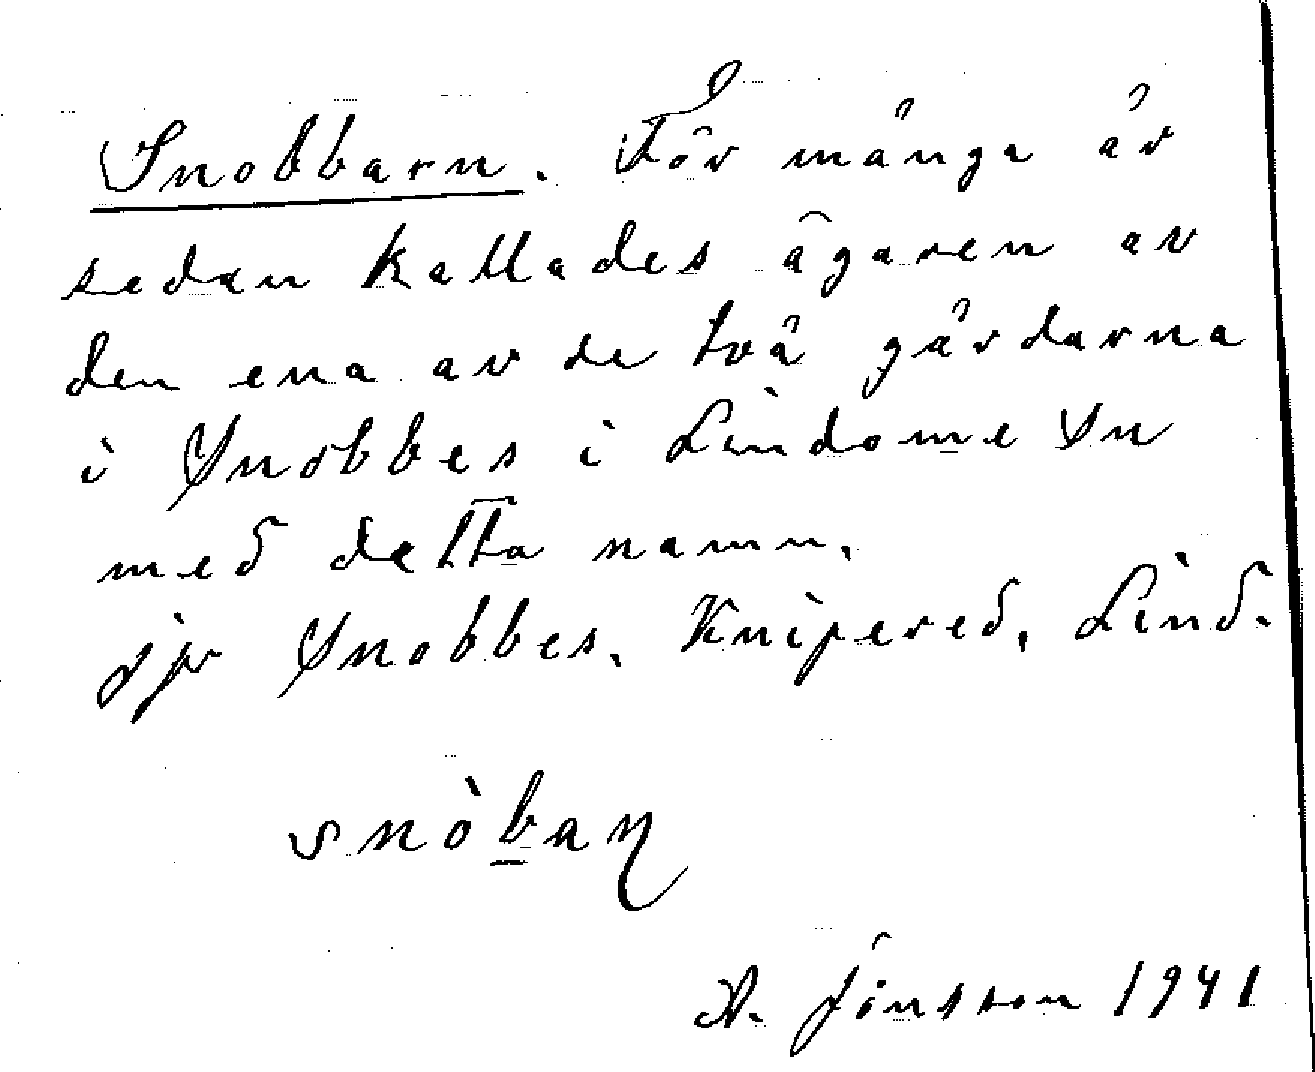 Snobbarn. För många år
sedan kallades ägaren av
den ena av de två gårdarna
i Snobbes i Lindome Sn
med detta namn.
jfr Snobbes, Knipered, Lind.
snòbaɳ
A. Jönsson 1941